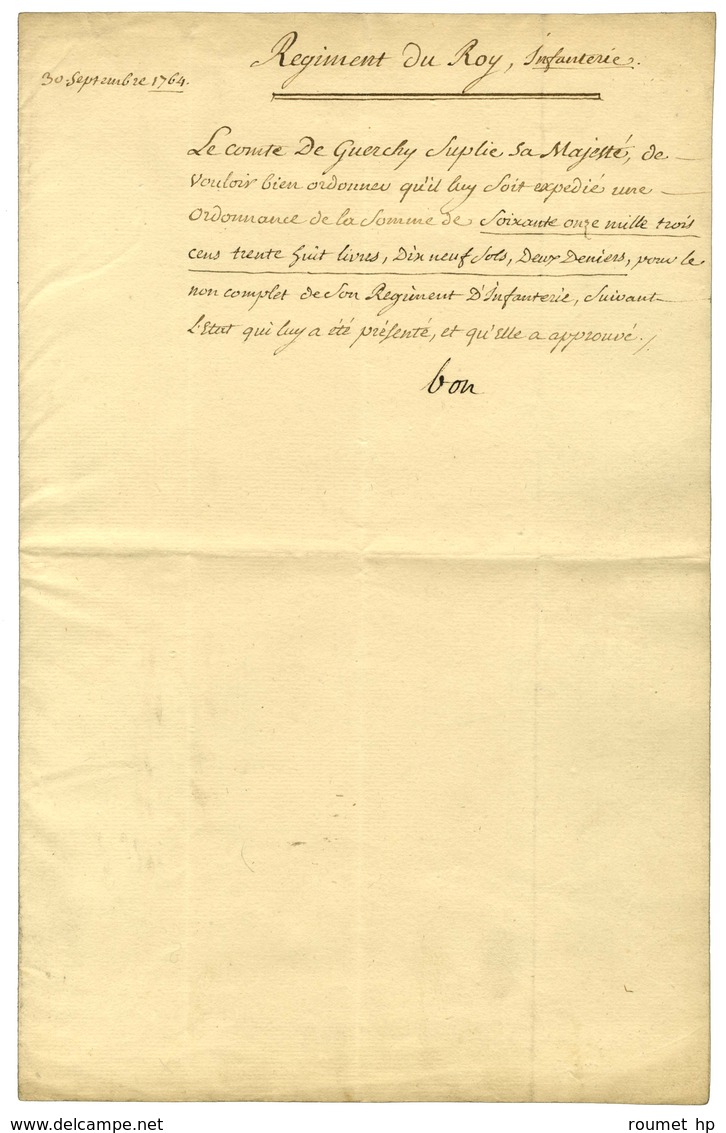 Regiment Du Roy, Infanterie.
30. Septembre 1764.
Le comte De Guerchy Suplie Sa Majesté, de
vouloir bien ordonner qu'il luy Soit expedié une
ordonnance de la Somme de Soixante onze mille trois
cens trente huit livres, Dix neuf Sols, Deux Deniers, pour le
non complet de Son Regiment D'Infanterie, Suivant
L'Etat qui luy a été présenté, et qu'Elle a approuvé./
bon
www.delcampe.net
roumet hp